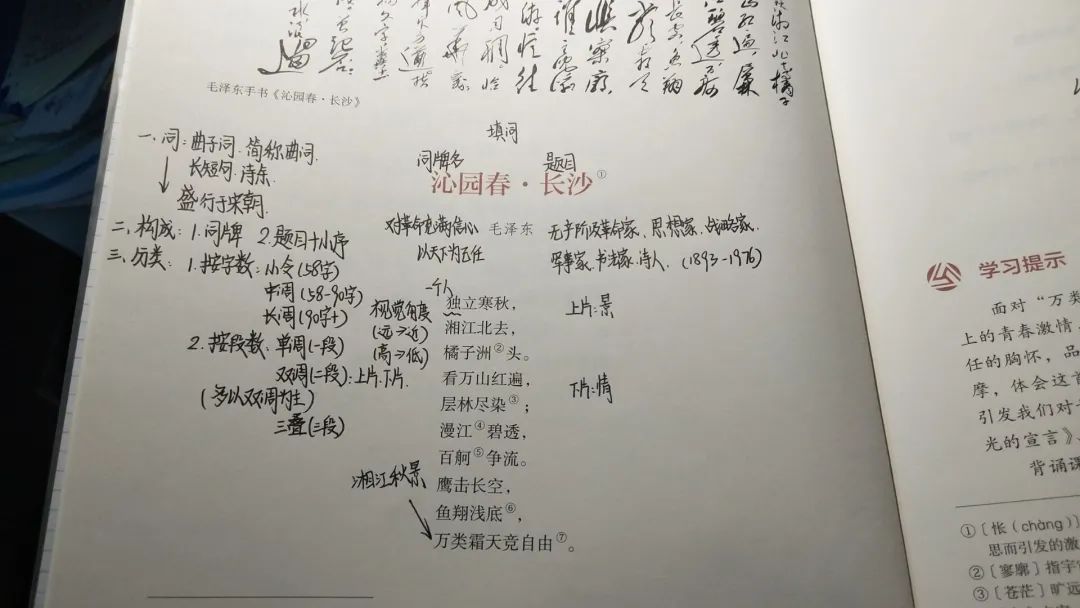 毛泽东手书《沁园春·长沙》
填词
词牌名
题目
沁园春·长沙①
一、词:曲子词 简称曲词.
长短句.诗余.
盛行于宋朝.
二、构成:1.词牌 2.题目十小序
三、分类:1.按字数:小令(58字)
中调(58-90字)
长调(90字+)
2.按段数:单调(一段)
双调(二段):上片.下片.
(多以双调为主)
三叠(三段)
对革命充满信心
以天下为己任
毛泽东
无产阶级革命家、思想家、战略家.
军事家.书法家.诗人.(1893-1976)
一个人
视觉角度
(远→近)
(高→低)
上片:景
下片:情
湘江秋景
独立寒秋,
湘江北去,
橘子洲②头。
看万山红遍,
层林尽染③;
漫江④碧透,
百舸⑤争流。
鹰击长空,
鱼翔浅底⑥,
万类霜天竞自由⑦。
学习提示
面对“万类
上的青春激情
任的胸怀,品
摩,体会这首
引发我们对
光的宣言》
背诵课
①〔怅(chàng)〕
思而引发的激
②〔寥廓〕指宇宙
③〔苍茫〕旷远